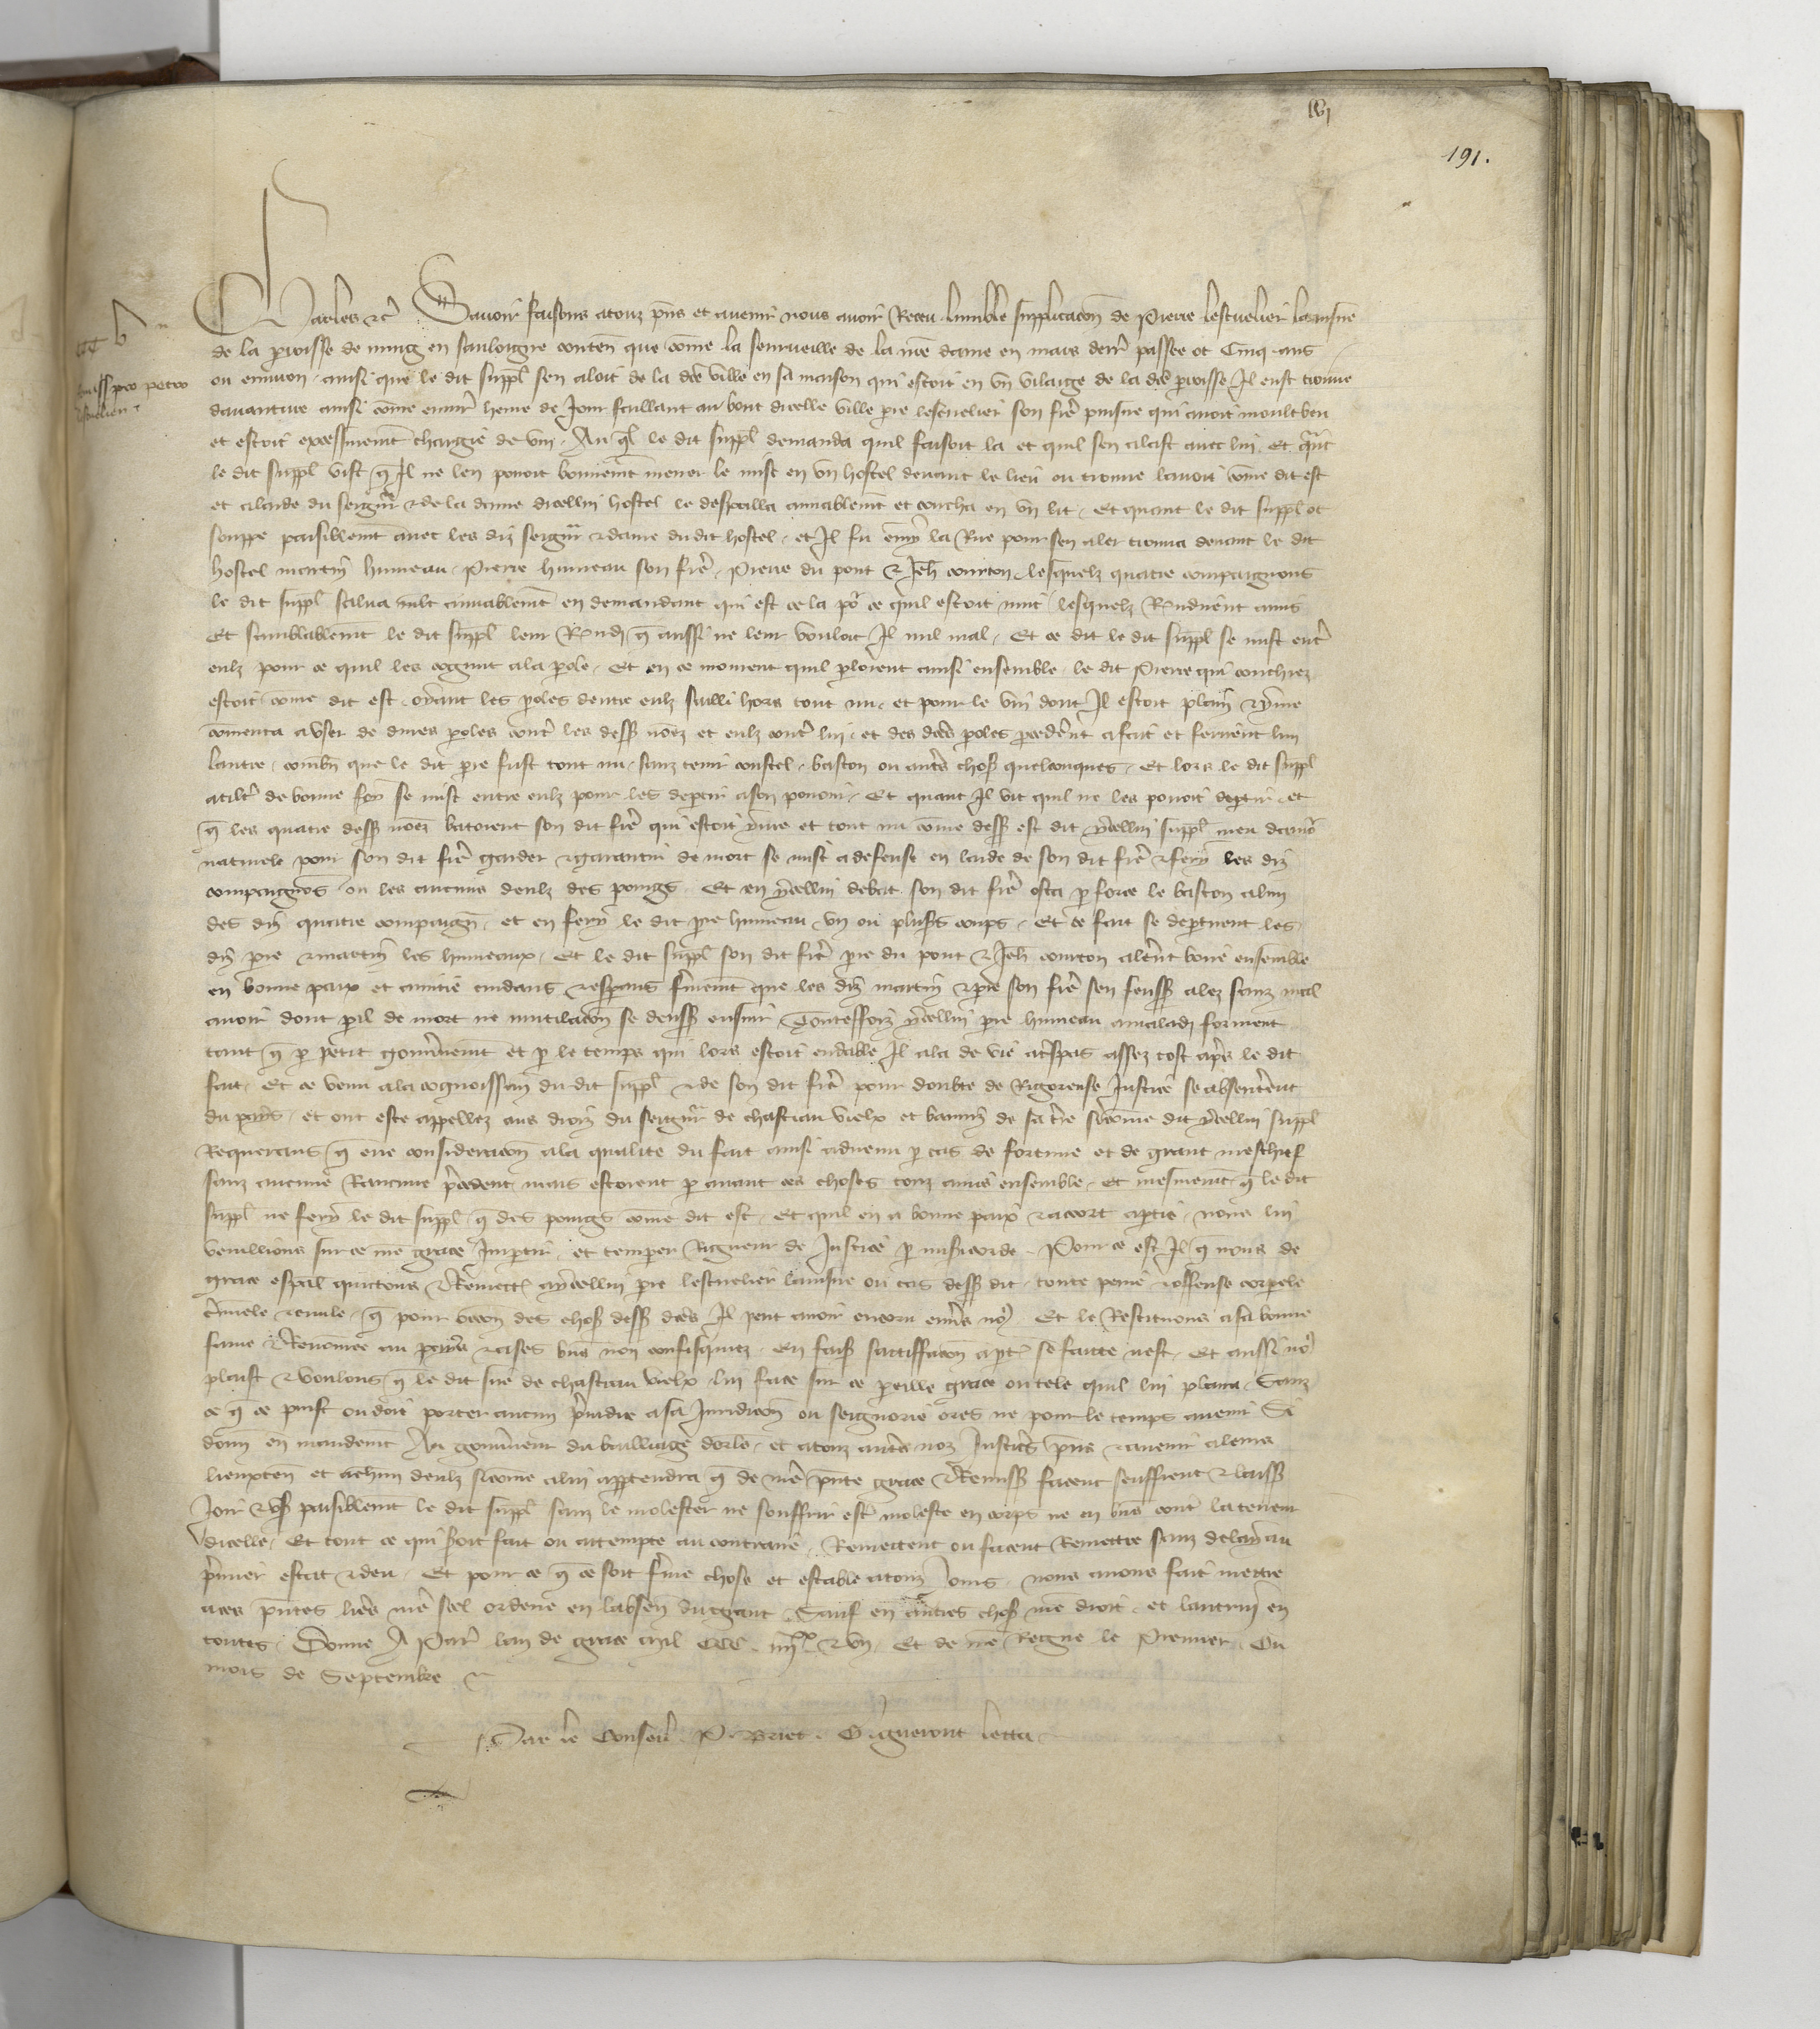 191.
Charles etc Savoir faisons atouz pns et avenir nous avoir Receu lumble supplicacon de Pierre lescuelier lainsne
de la proisse de ming en sauloigne conten que come la seurveille de la nre dame en mars derr passee ot Cinq ans
ou environ ainsi que le dit suppl sen aloit de la dce ville en sa maison qui estoit en un vilaige de la dce proisse Il eust trouve
davanture ainsi come envir heure de Jour faillant au bout dicelle ville pre lescuelier son frere puisne qui avoit moult beu
et estoit expressement chargie de vin Au ql le dit suppl demanda quil faisoit la et quil sen alast avec lui Et quant
le dit suppl vist q Il ne len povoit bonnement mener le mist en un hostel devant le lieu ou trouve lavoit come dit est
et alaide du seigneur et de la dame dicellui hostel le despoilla amiablemt et coucha en un lit Et quant le dit suppl ot
souppe paisiblemt avec les diz seigneur et dame du dit hostel et Il fu emy la Rue pour sen aler trouva devant le dit
hostel martin humeau Pierre humeau son frere Pierre du pont et Jeh courton lesquelz quatre compaignons
le dit suppl salua mlt amiablemt en demandant qui est ce la por ce quil estoit nuit lesquelz Rndirent amis
Et semblablemt le dit suppl leur Rnd q aussi ne leur vouloit Il nul mal Et ce dit le dit suppl se mist entr
eulz pour ce quil les cognut ala prole Et en ce moment quil ploient ainsi ensemble le dit Pierre qui couchiez
estoit come dit est oyant les proles dentre eulz sailli hors tout nu et pour le vin dont Il estoit plain et yvre
comenca a user de dures proles contr les dess nomez et eulz contr lui et des dces proles procederent afait et ferirent lun
lautre combn que le dit pre fust tout nu sanz tenir coustel baston ou autres choses quelconques Et lors le dit suppl
atiltr de bonne foy se mist entre eulz pour les deptir ason povoir Et quant Il vit quil ne les povoit deptir et
q les quatre dess nomez batoient son dit frere qui estoit yvre et tout nu come dess est dit ycellui suppl meu damor
naturele pour son dit frere garder et garantir de mort se mist a defense en laide de son dit frere et fery les diz
compaignons ou les aucuns deulz des poings Et en ycellui debat son dit frere osta p force le baston alun
des diz quatre compaign et en fery le dit pre humeau un ou plusrs coups Et ce fait se deptirent les
diz pre et martin les humeaux Et le dit suppl son dit frere pre du pont et Jeh courton alerent boire ensemble
en bonne paix et amitie cuidans et esperans fermemt que les diz martin et pre son frere sen feussent alez sanz mal
avoir dont pril de mort ne mutilacon se deust ensuir Toutesfoiz ycellui pre humeau amalady forment
tant q p petit gouvernemt et p le temps qui lors estoit Il ala de vie a trespas assez tost apres le dit
fait Et ce venu ala cognoissance du dit suppl et de son dit frere pour doubte de Rigoreuse Justice se absenterent
du pays et ont este appellez aus droiz du seigneur de chasteau vielx et banniz de sa terre sicome dit ycellui suppl
Requerans q eue consideracon ala qualite du fait ainsi advenu p cas de fortune et de grant meschief
sanz aucune Rancune precedent mais estoient p avant ces choses touz amis ensemble et mesmemt q le dit
suppl ne fery le dit suppl q des poings come dit est Et quil en a bonne paix et accort aptie nous lui
veuillions sur ce nre grace Impartir et temperer Rigueur de Justice p misericorde Pour ce est Il q nous de
grace espal quictons et Remectons aycellui pre lescuelier lainsne ou cas dess dit toute peine et offense corporele
criminele et civile q pour occon des choses dess dces Il peut avoir encoru envers nous Et le Restituons asa bonne
fame et Renomee au pays et ases biens non confisquez en fais satisffacon aptie se faicte nest Et aussi nous
plaist et voulons q le dit sire de chasteau vielx lui face sur ce pareille grace ou tele quil lui plaira Sanz
ce q ce puist ou doit porter aucun prejudice asa Juridicon ou seignorie ores ne pour le temps avenir Si
donn en mandemt Au gouverneur du bailliage dorle et atouz autres noz Justiciers pns et avenir aleurs
lieuxten et achun deulz sicome alui apptendra q de nre pnte grace et Remission facent seuffrent et laissent
Joir et user paisiblemt le dit suppl sanz le molester ne souffrir estre moleste en corps ne en biens contr la teneur
dicelle Et tout ce qui seroit fait ou attempte au contraire Remectent ou facent Remettre sanz delay au
premier estat et deu Et pour ce q ce soit ferme chose et estable atouz Jours nous avons fait mettre
aces pntes lettres nre seel ordene en labsence du grant Sauf en autres choses nre droit et lautrui en
toutes Donne A Paris lan de grace mil CCC IIIIxx et un Et de nre Regne le Premier Ou
mois de Septembre
Par le Conseil P. Briet G gueront lecta